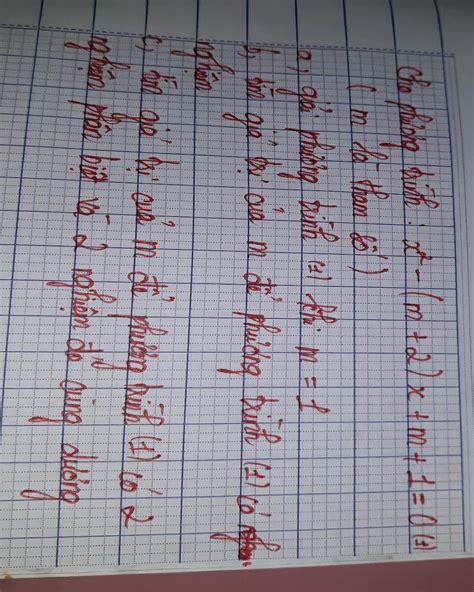 Cho phương trình : x² - (m + 2)x + m + 1 = 0 (1)
( m là tham số )
a, giải phương trình (1) khi m = 1
b, tìm giá trị của m để phương trình (1) có nghiệm
nghiệm
c, tìm giá trị của m để phương trình (1) có 2
nghiệm phân biệt và 2 nghiệm đó cùng dương